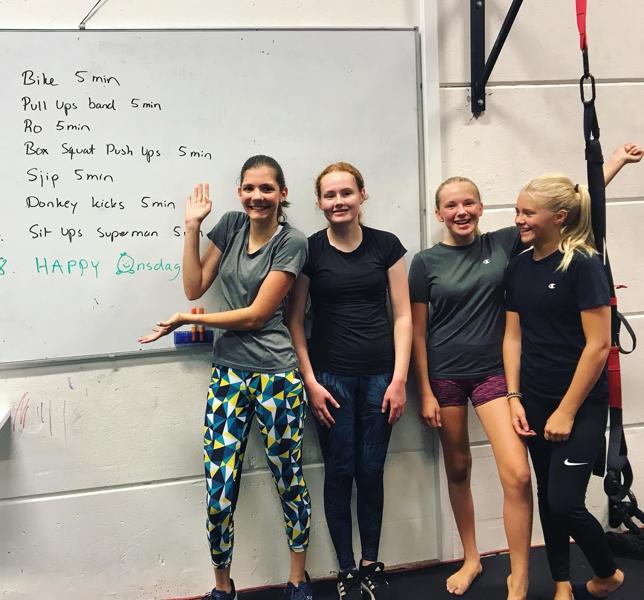 Bike 5 min
Pull Ups band 5 min
Ro 5min
Box Squat Push Ups 5 min
Sjip 5min
Donkey kicks 5 min
Sit Ups superman 5
8. HAPPY Onsdag